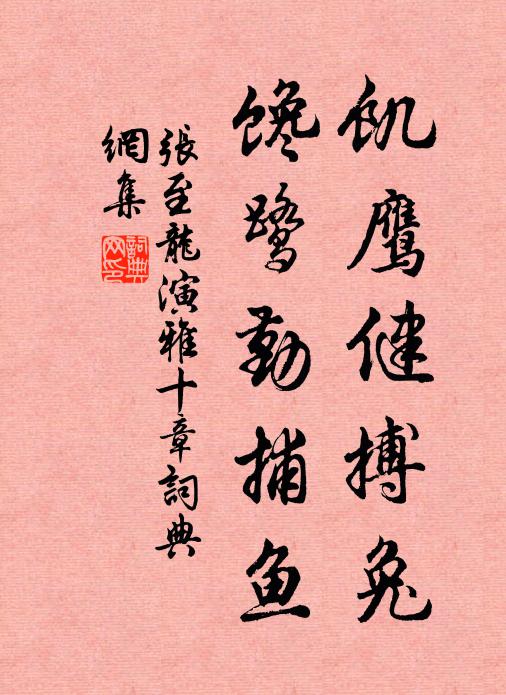 飢鹰健搏兔
馋鹭勤捕鱼
張至龍演雅十章詞典
網集
詞典
网印